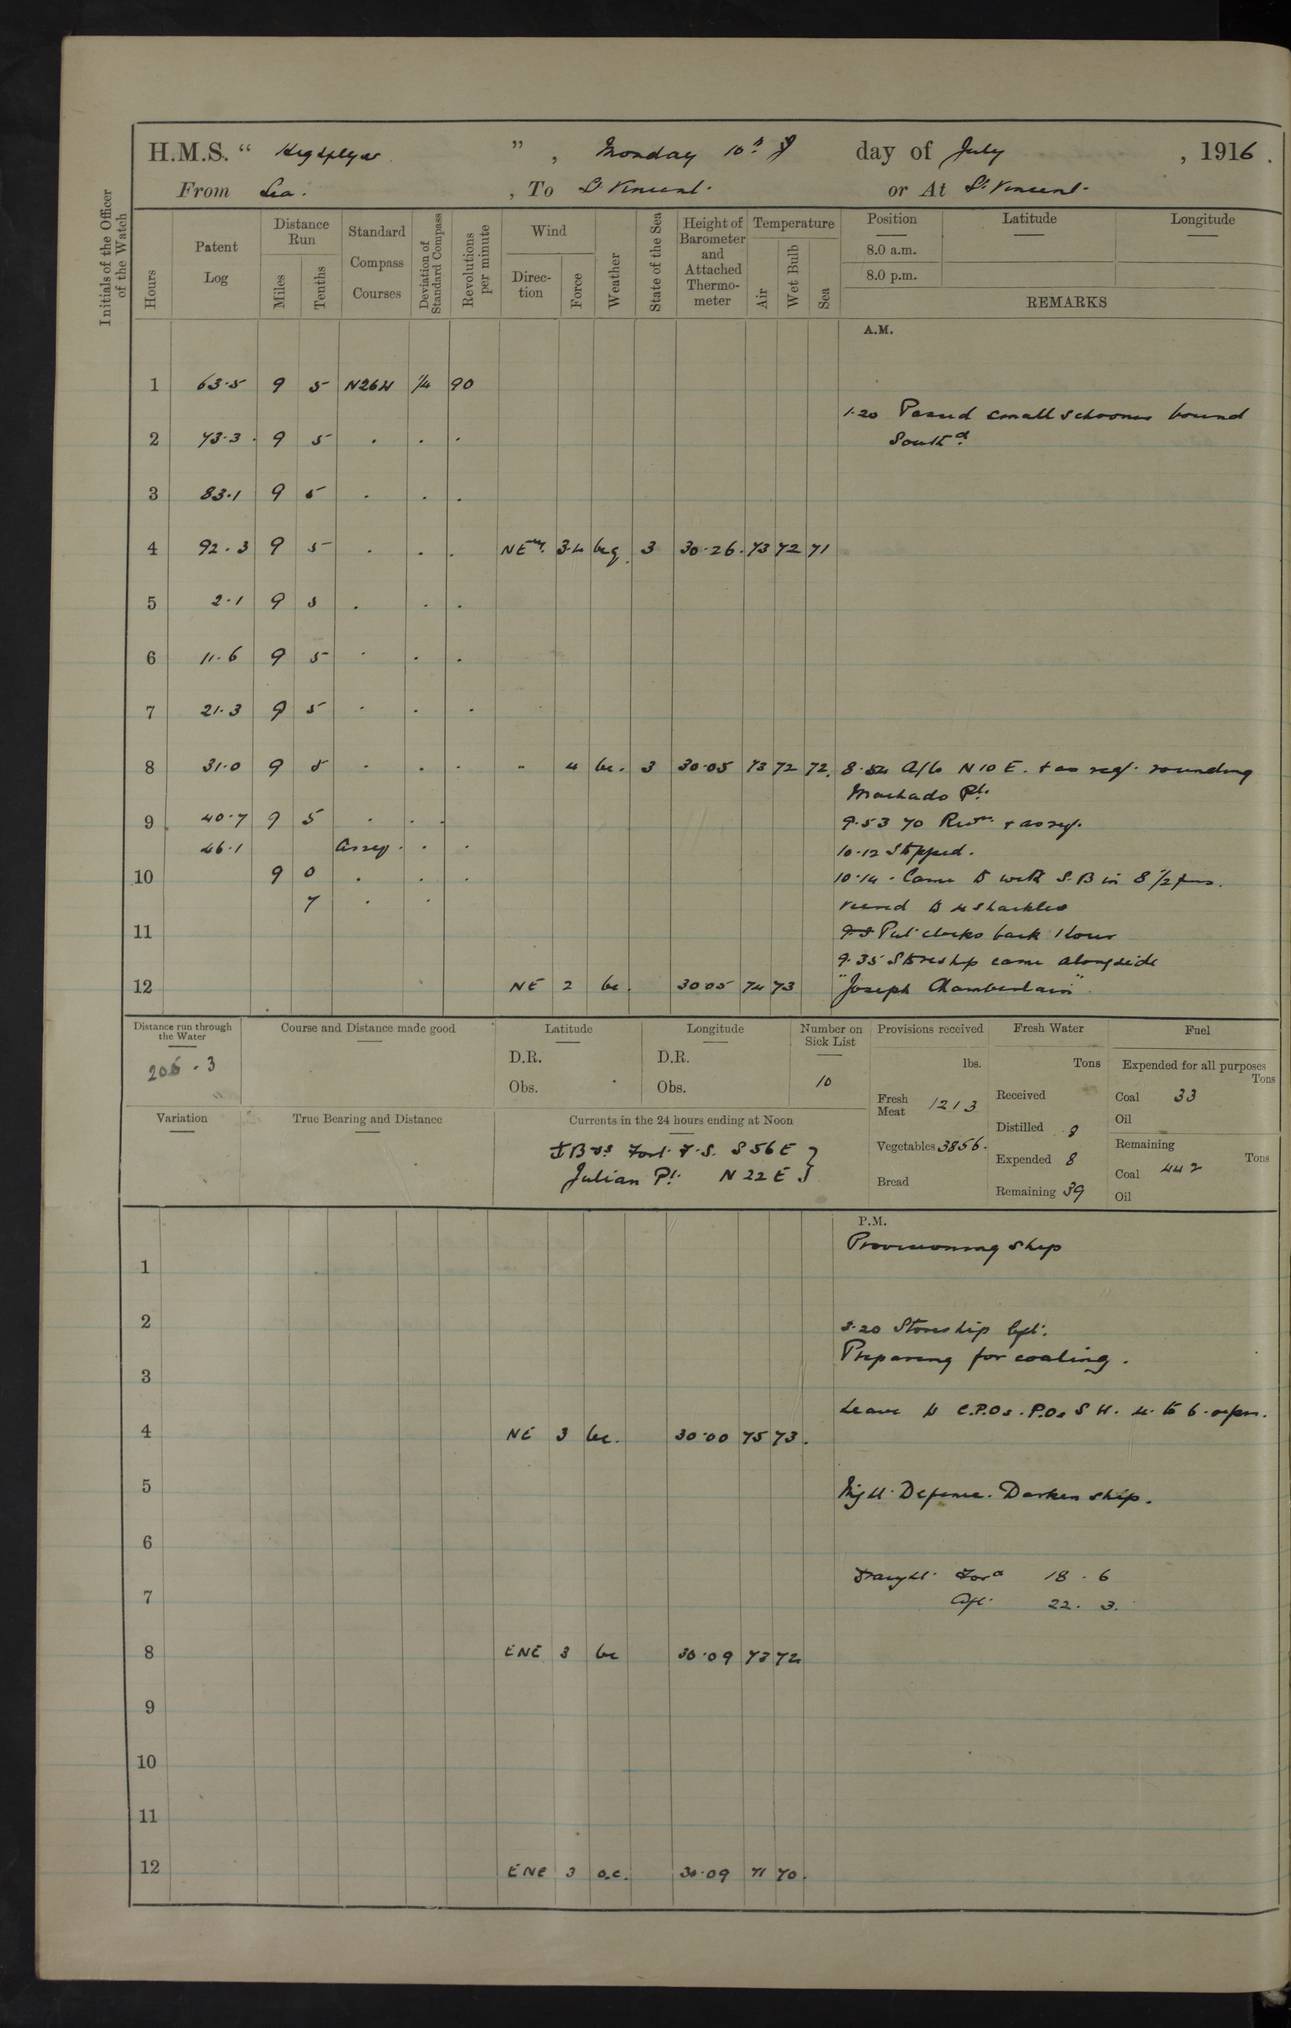 H.M.S. " Highflyer " , Monday 10th day of July , 1916.
From Sea. , To St Vincent. or At St. Vincent.
Initials of the Officer of the Watch
Hours
Patent Log
Distance Run
Miles
Tenths
Standard Compass Courses
Deviation of Standard Compass
Revolutions per minute
Wind
Direction
Force
Weather
State of the Sea
Height of Barometer and Attached Thermometer
Temperature
Air
Wet Bulb
Sea
Position Latitude Longitude
8.0 a.m.
8.0 p.m.
REMARKS
A.M.
1 63.5 9 5 N26W 1/4 90
1.20 Passed small schooner bound
2 73.3 . 9 5 . . . Southd
3 83.1 9 5 . . .
4 92.3 9 5 . . . NEly. 3.4 bcq. 3 30.26. 73 72 71
5 2.1 9 5 . . .
6 11.6 9 5 . . .
7 21.3 9 5 . . .
8 31.0 9 5 . . . " 4 bc. 3 30.05 73 72 72. 8.54 A/c N10E. + as req. rounding
Machado Pt.
9 40.7 9 5 . . . 9.53 70 Revns + as req.
46.1 as req. . . 10.12 Stopped.
10 9 0 . . . 10.14. Came to with S.B in 8 1/2 fms.
7 . . veered to 4 shackles
11 Put clocks back 1 hour
9.35 Storeship came alongside
12 NE 2 bc. 30.05 74 73 "Joseph Chamberlain".
Distance run through the Water
206.3
Course and Distance made good
Latitude
D.R.
Obs.
Longitude
D.R.
Obs.
Number on Sick List
10
Provisions received
lbs.
Fresh Meat 1213
Vegetables 3856.
Bread
Fresh Water
Tons
Received
Distilled 8
Expended 8
Remaining 39
Fuel
Expended for all purposes
Tons
Coal 33
Oil
Remaining
Tons
Coal 442
Oil
Variation
True Bearing and Distance
Currents in the 24 hours ending at Noon
Fort F.S. S56E
Julian Pt. N22E
P.M.
Provisioning ship
1
2 3.20 Storeship left.
Preparing for coaling.
3
Leave to C.P.Os. P.Os
4 NE 3 bc. 30.00 75 73.
5 Night Defence. Darken ship.
6
Draught Ford 18.6
7 Aft. 22.3.
8 ENE 3 bc 30.09 73 72
9
10
11
12 ENE 3 o.c. 30.09 71 70.